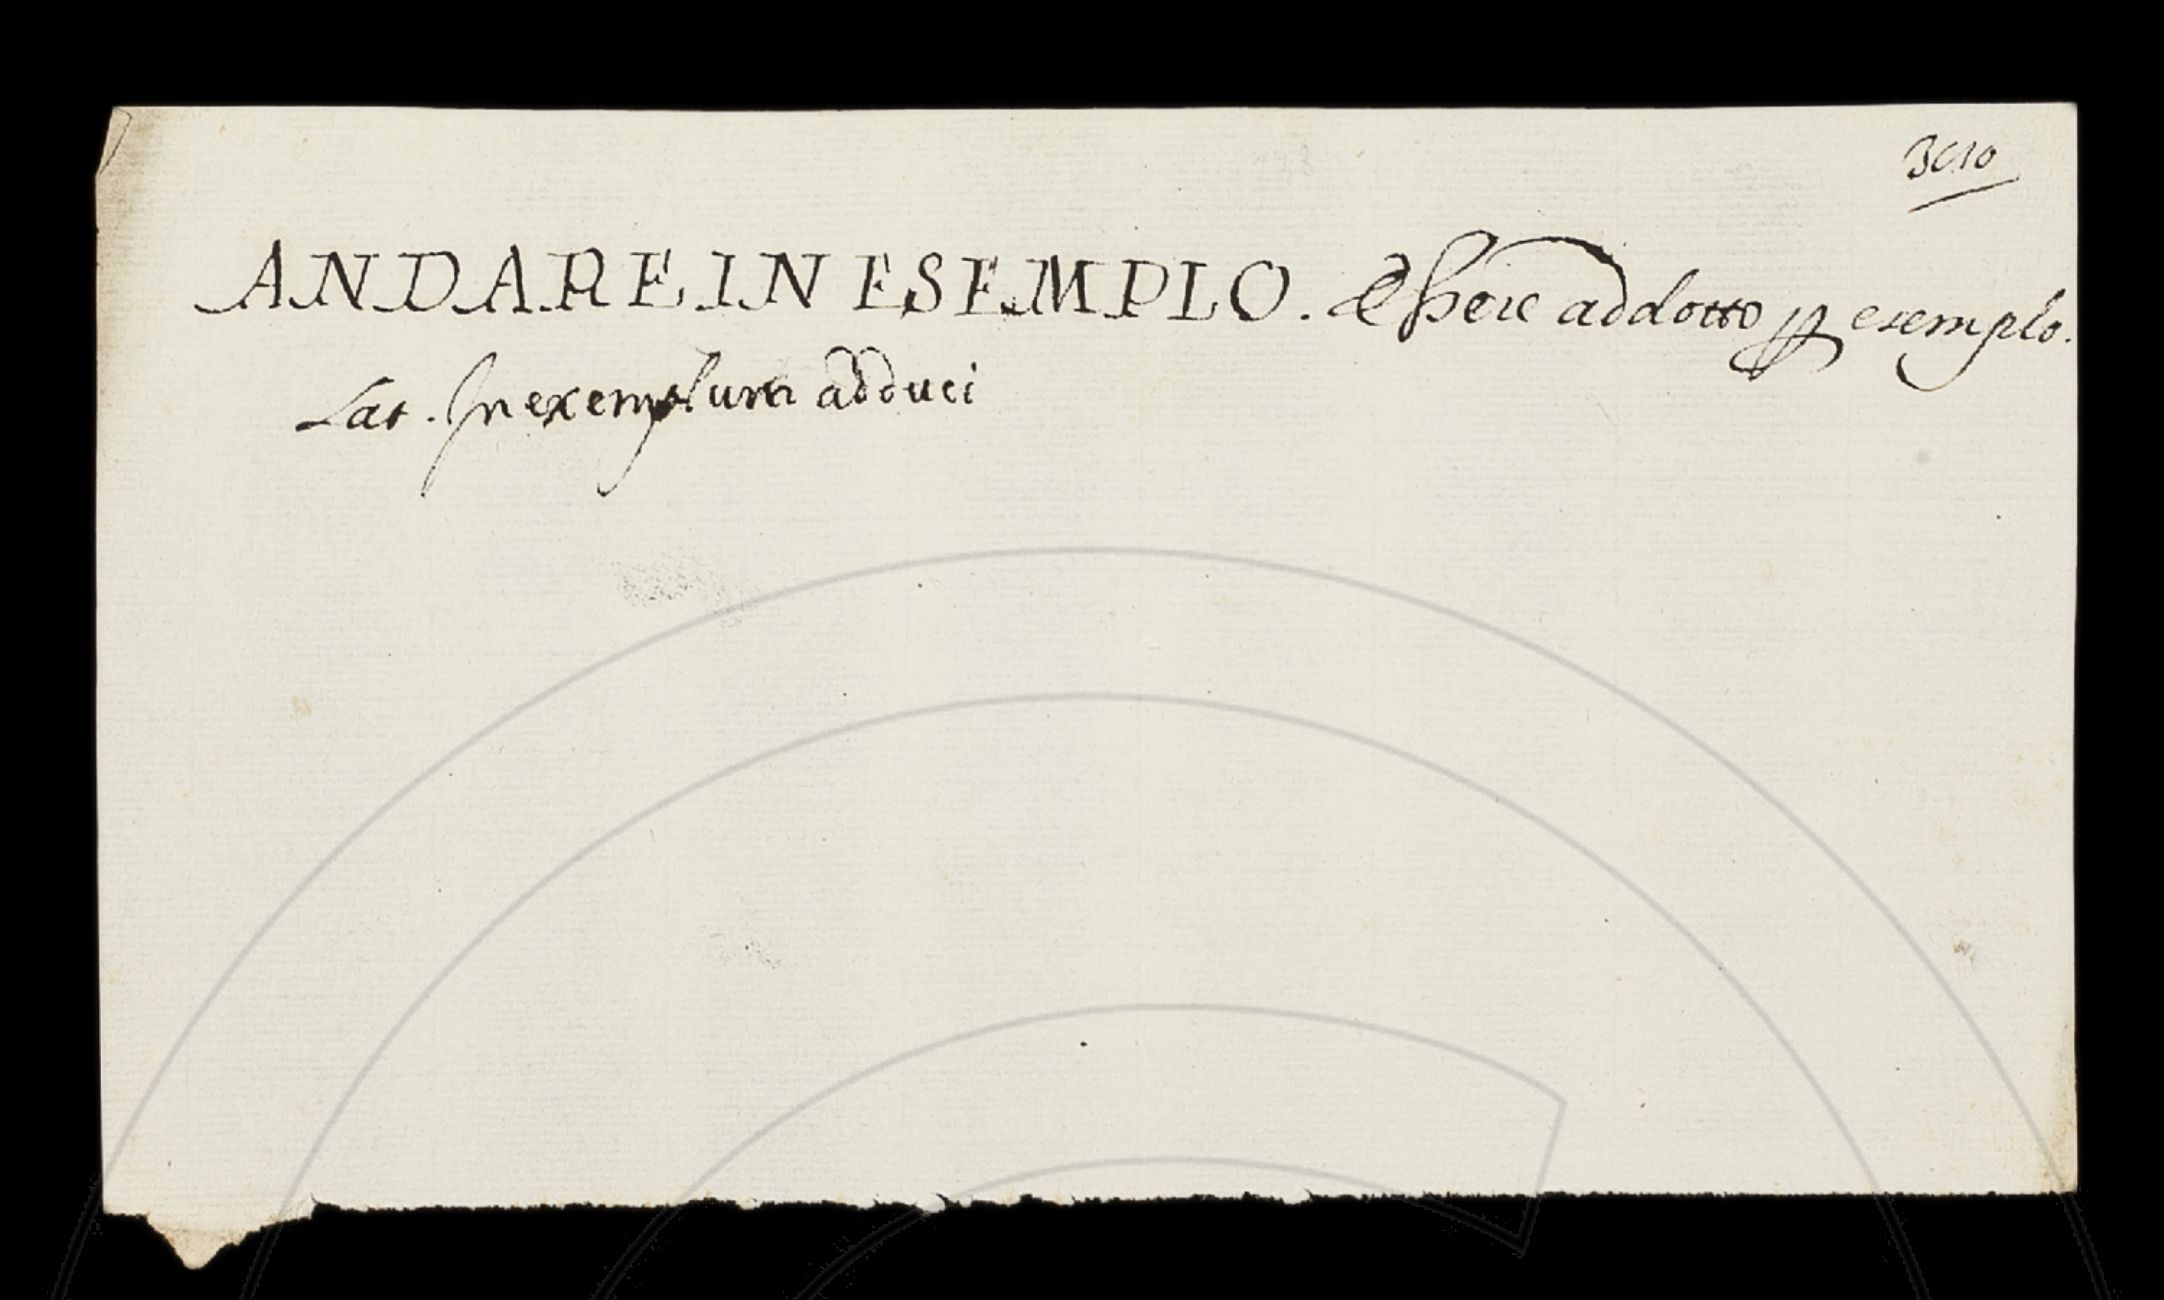 3010
ANDARE IN ESEMPLO. Essere addotto ꝑ esemplo.
Lat. In exemplum adduci